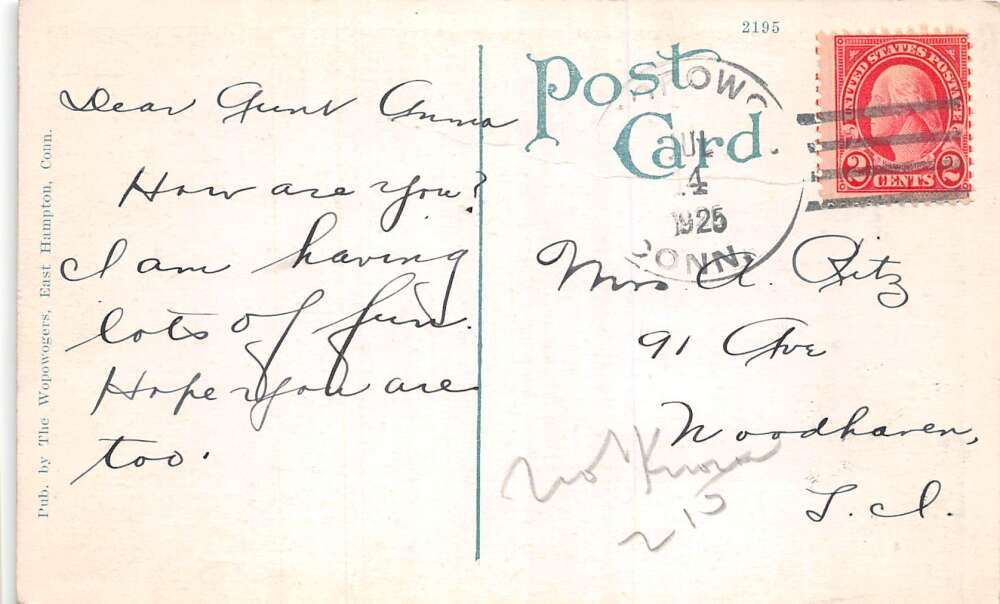 2195
Post
Card
JUL
4
1925
CONN.
UNITED STATES POSTAGE
2 CENTS 2
Dear Aunt Anna
How are you?
I am having
lots of fun.
Hope you are
too.
Mrs. A. Ritz
91 Ave
Woodhaven,
L. I.
No
Pub. by The Wopowogers, East Hampton, Conn.